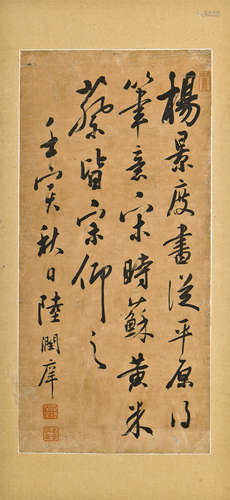 楊景度書從平原得
筆意宋時蘇黃米
蔡皆宗仰之
壬寅秋日陸潤庠